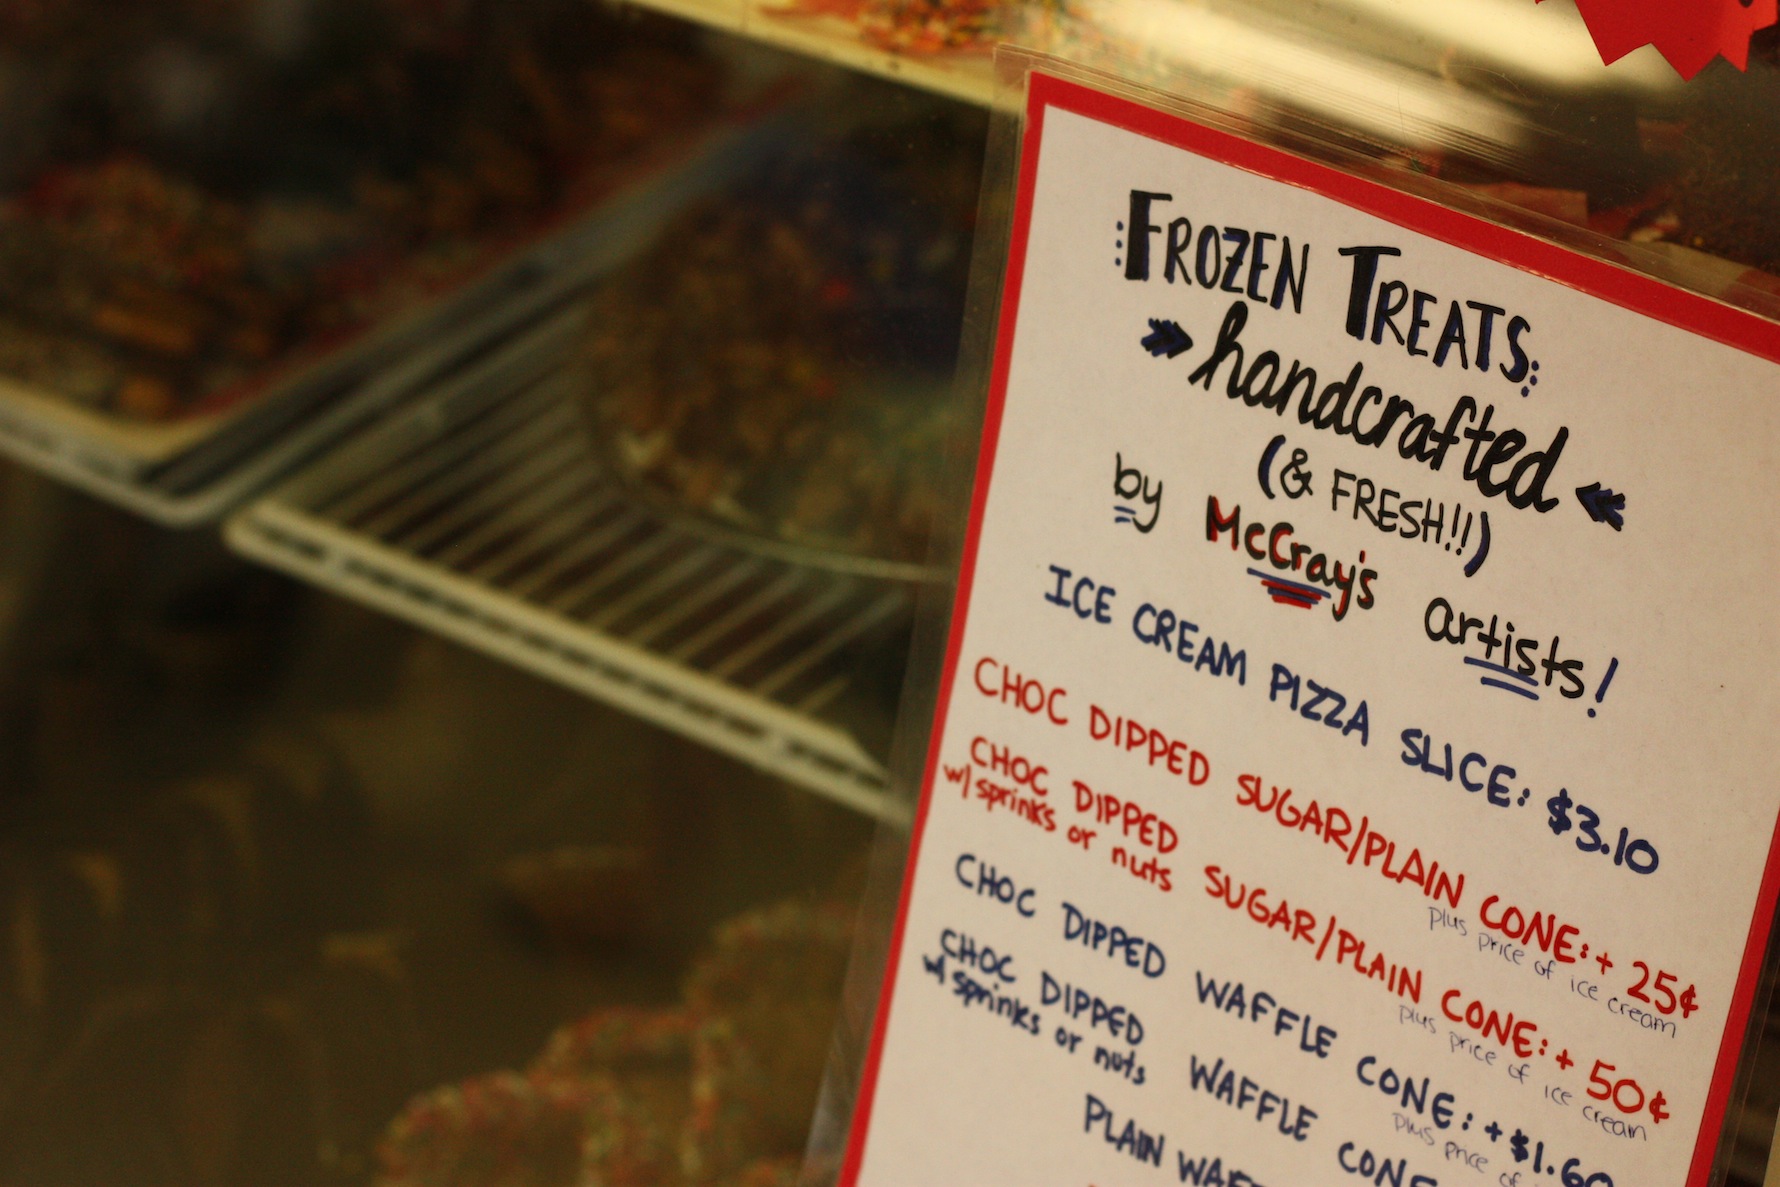 FROZEN TREATS:
handcrafted
(& FRESH!!)
by McCray's artists!
ICE CREAM PIZZA SLICE: $3.10
CHOC DIPPED SUGAR/PLAIN CONE: + 25¢
plus price of ice cream
CHOC DIPPED SUGAR/PLAIN CONE: + 50¢
w/ sprinks or nuts
plus price of ice cream
CHOC DIPPED WAFFLE CONE: + $1.60
plus price of
CHOC DIPPED WAFFLE CONE
w/ sprinks or nuts
PLAIN